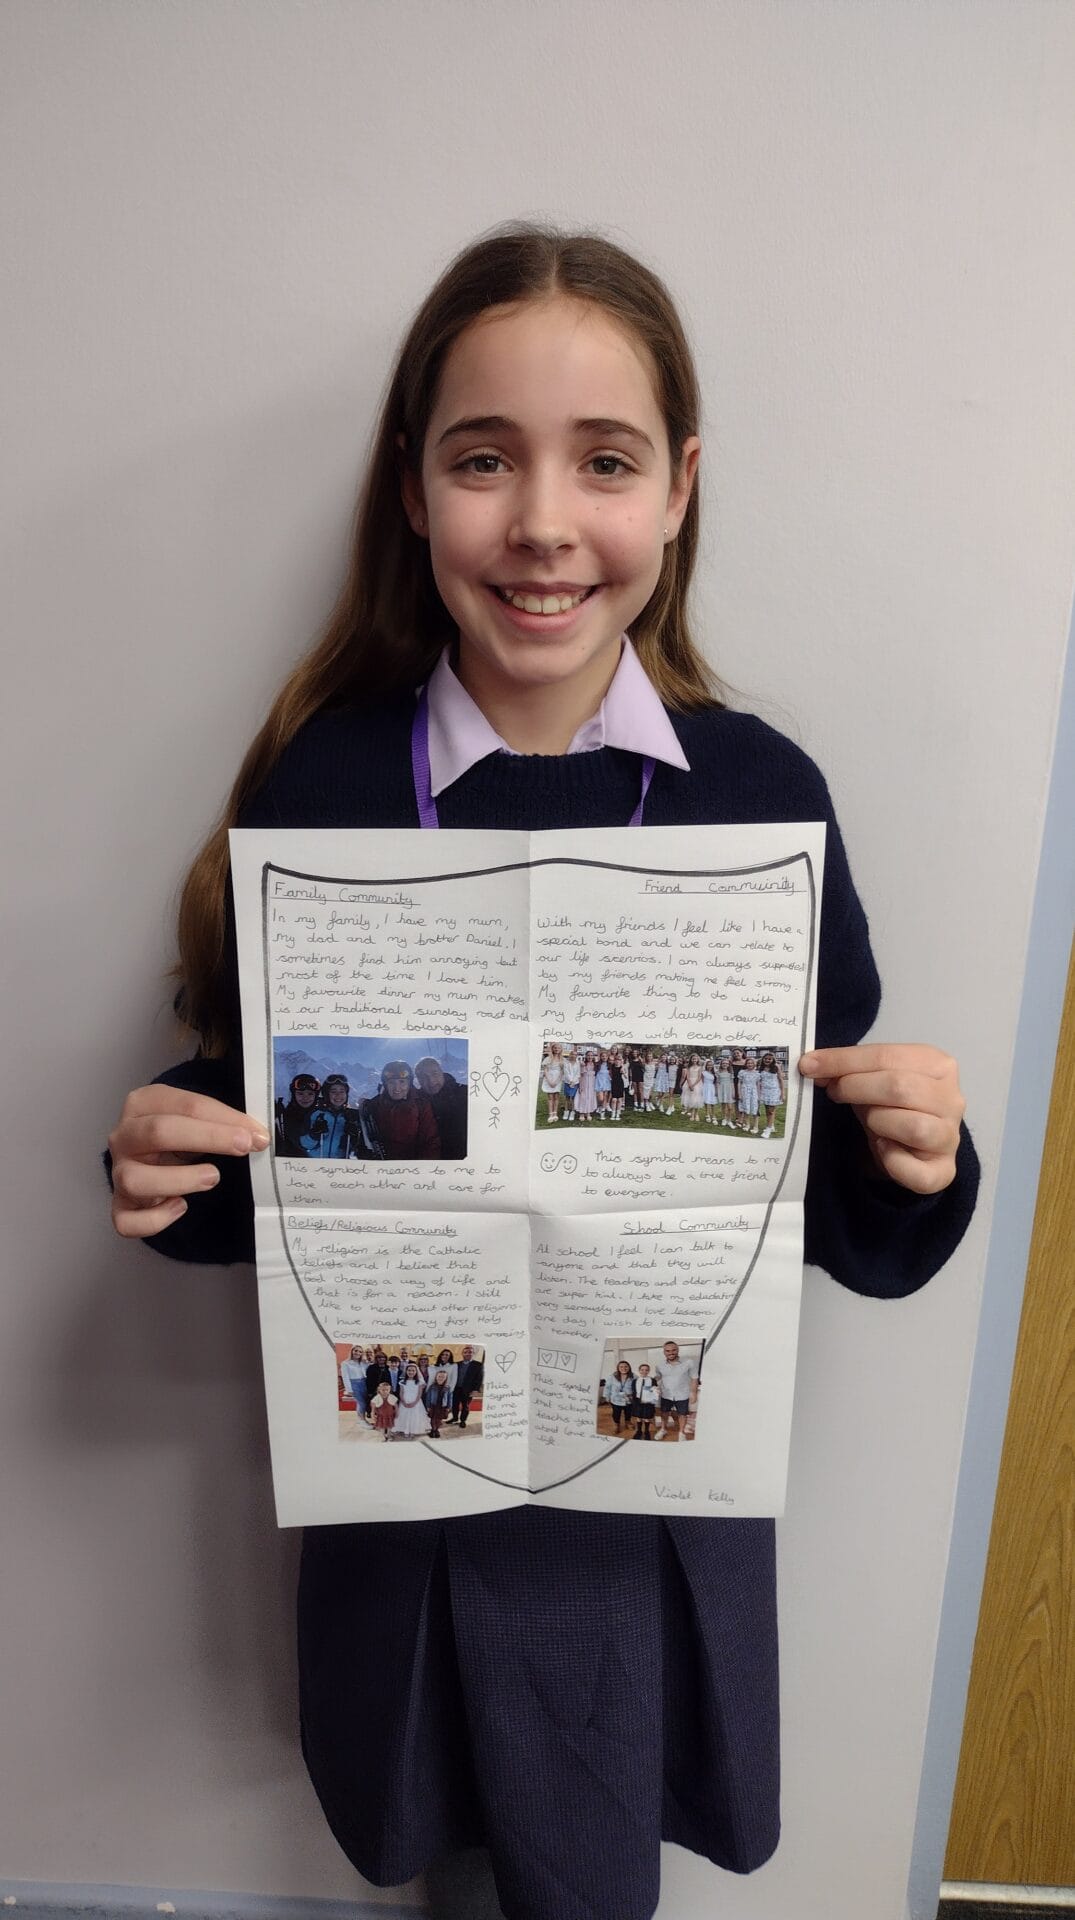 Family Community
In my family, I have my mum,
my dad and my brother Daniel. I
sometimes find him annoying but
most of the time I love him.
My favourite dinner my mum makes
is our traditional sunday roast and
I love my dads bolangse.
This symbol means to me to
love each other and care for
them.
Friend Community
With my friends I feel like I have a
special bond and we can relate to
our life scenrios. I am always supported
by my friends making me feel strong.
My favourite thing to do with
my friends is laugh around and
play games with each other.
This symbol means to me
to always be a true friend
to everyone.
Beliefs/Religious Community
My religion is the Catholic
beliefs and I believe that
God chooses a way of life and
that is for a reason. I still
like to hear about other religions.
I have made my first Holy
Communion and it was amazing
This
symbol
to me
means
God loves
everyone.
School Community
At school I feel I can talk to
anyone and that they will
listen. The teachers and older girls
are super kind. I take my education
very seriously and love lessons.
One day I wish to become
a teacher.
This symbol
means to me
that school
teachs you
about love and
life.
Violet Kelly